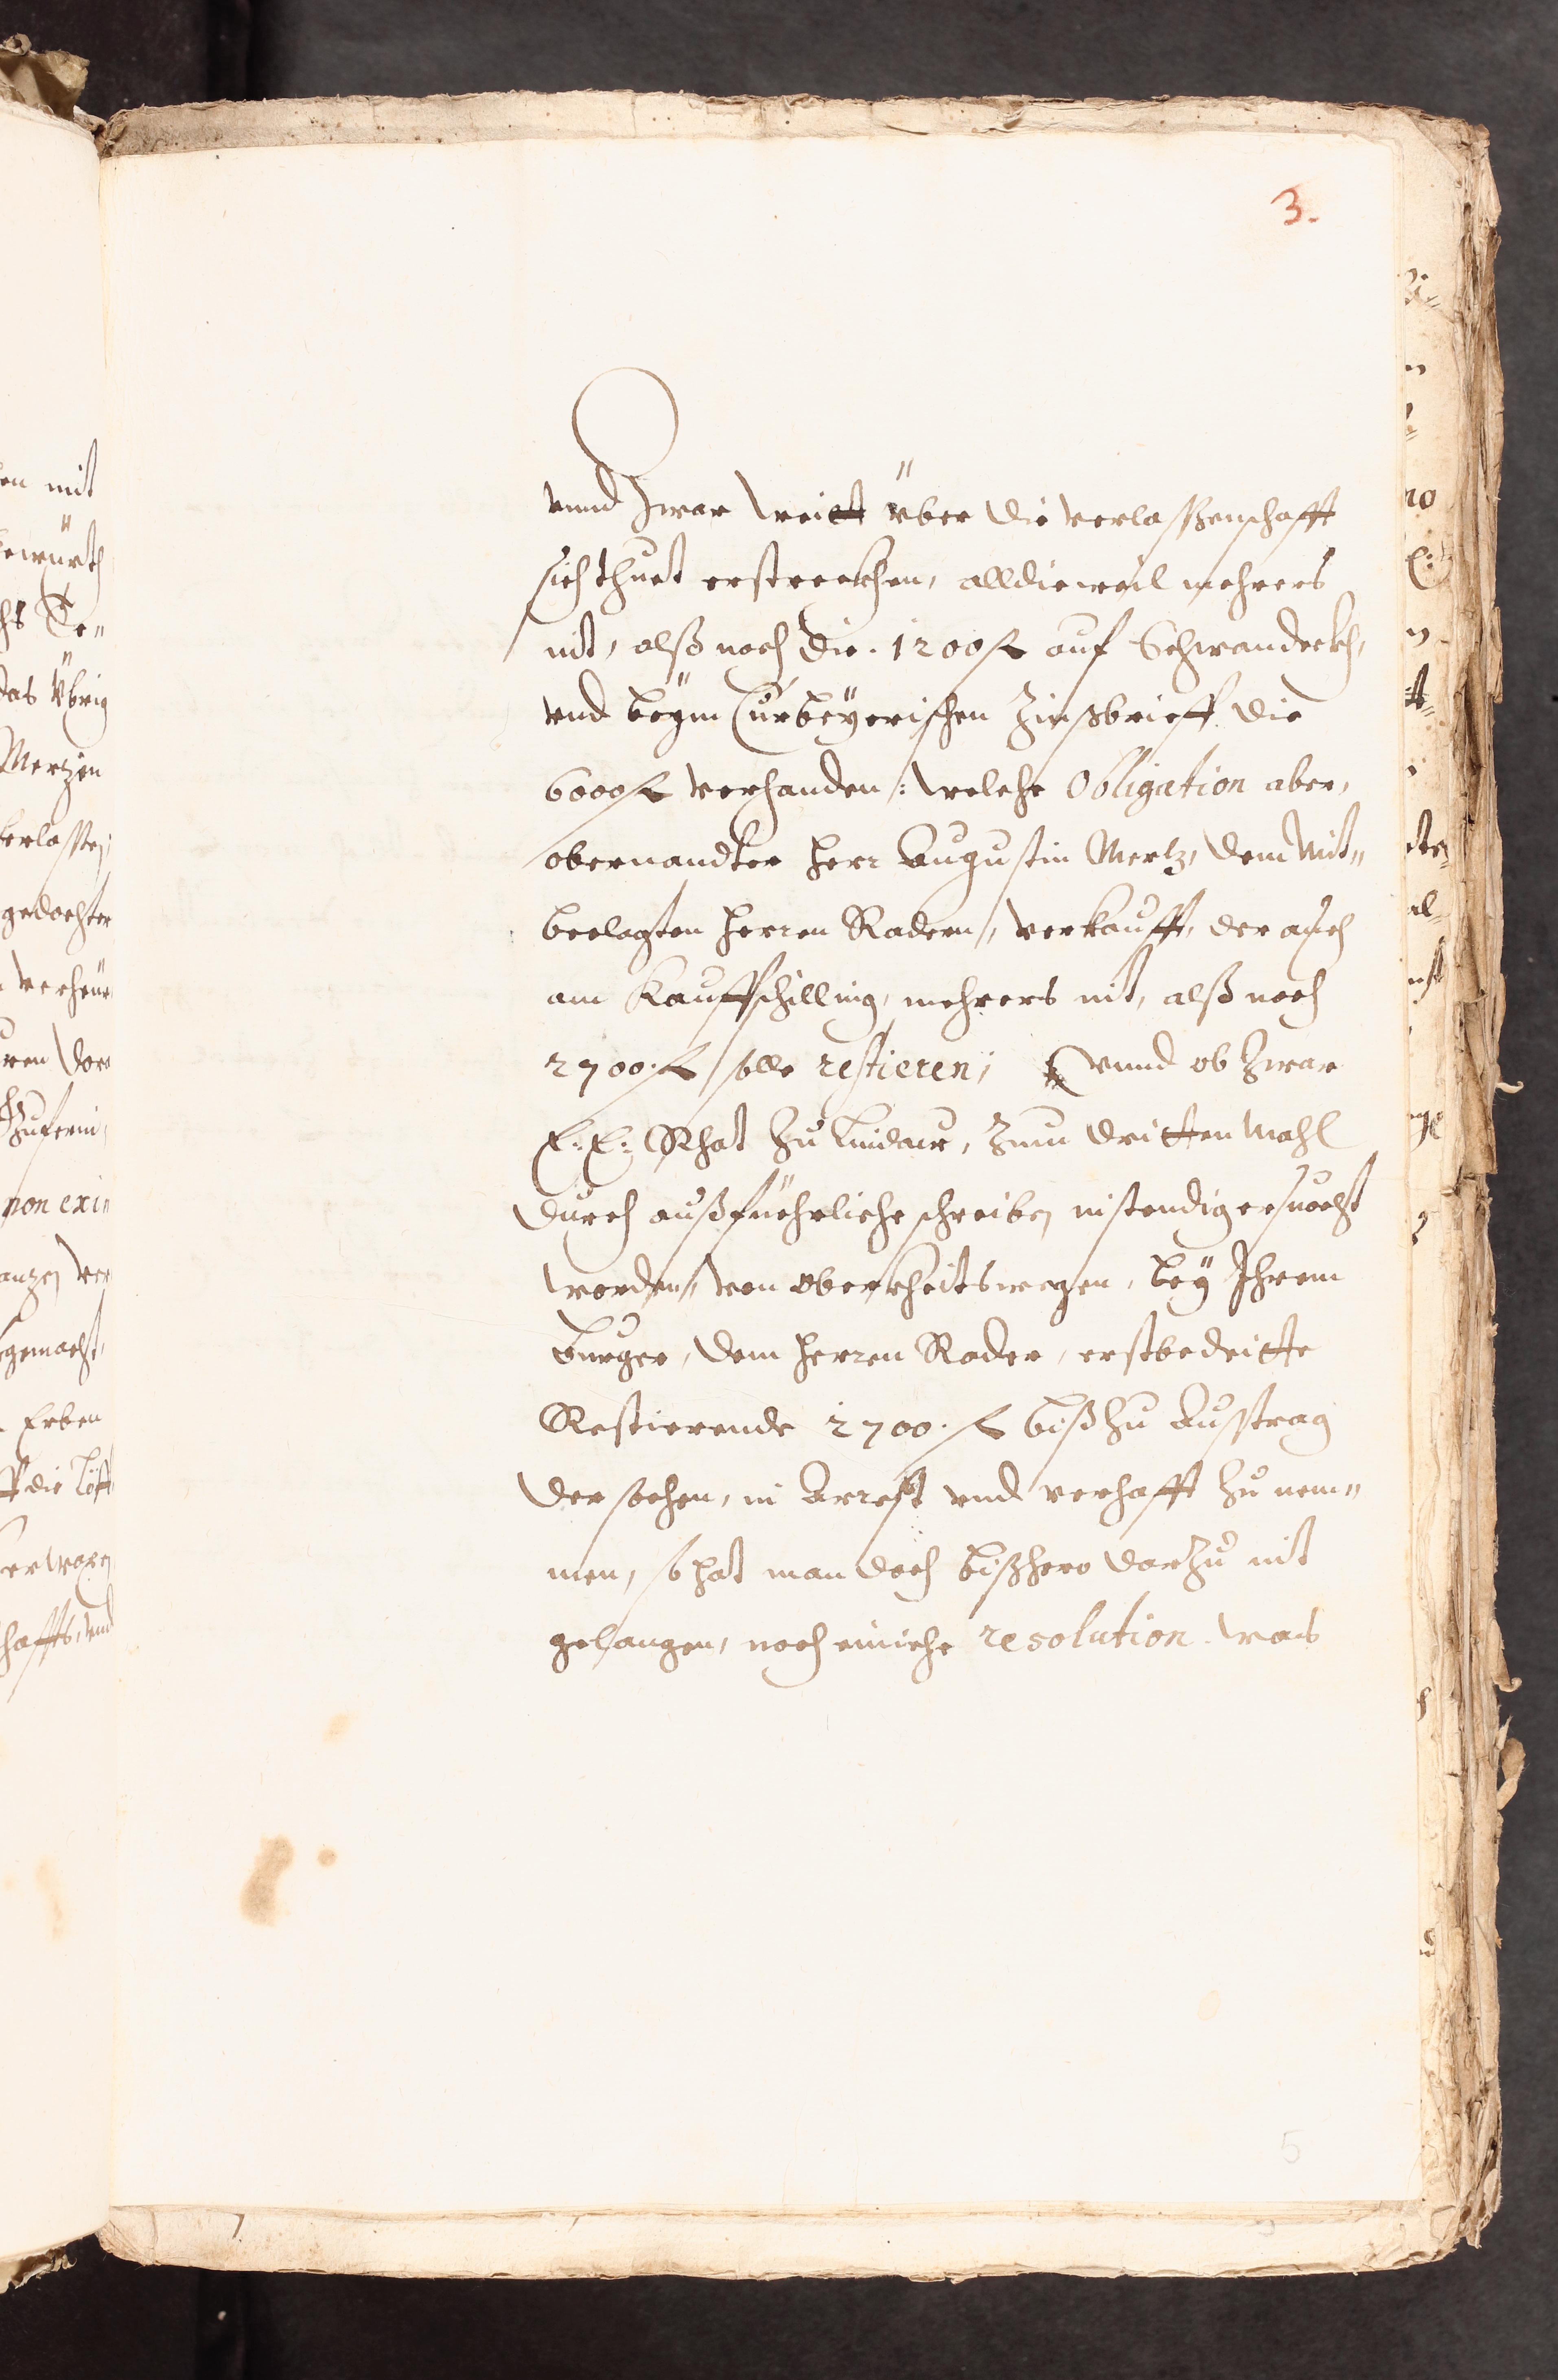 3.
vnnd zwar weitt über die verlassenschafft
sich thuet erstreckhen, alldieweil mehrers
nit, alß noch die. 1200 fl auf Schwandeckh,
vnd beÿm Curbeÿerischen Zinßbrieff die
6000 fl verhanden: welche Obligation aber,
obernandter herr Augustin Mertz, dem Mit„
beclagten herren Radern, verkaufft, der auch
am Kauffschilling, mehrers nit, alß noch
2700. fl solle restieren; vnnd ob zwar
E: E: Rhat zu Lindaw, zum dritten mahl
durch außfüehrliche schreiben instendig ersuecht
worden, von oberkheitswegen, beÿ Ihrem
burger, dem herren Rader, erstbedeitte
Restierende 2700. fl biß zu Austrag
der sachen, in Arrest vnd verhafft zu nem„
men, so hat man doch bißhero darzu nit
gelangen, noch einiche resolution was
5